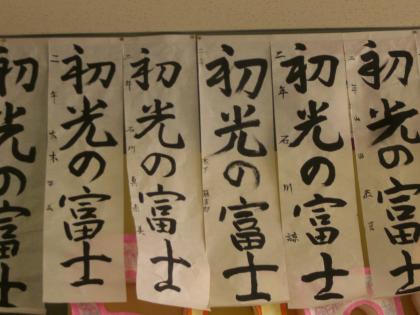 初光の富士
初光の富士
二年
初光の富士
二年 石川
初光の富士
初光の富士
二年 石川 諒
初光の富士